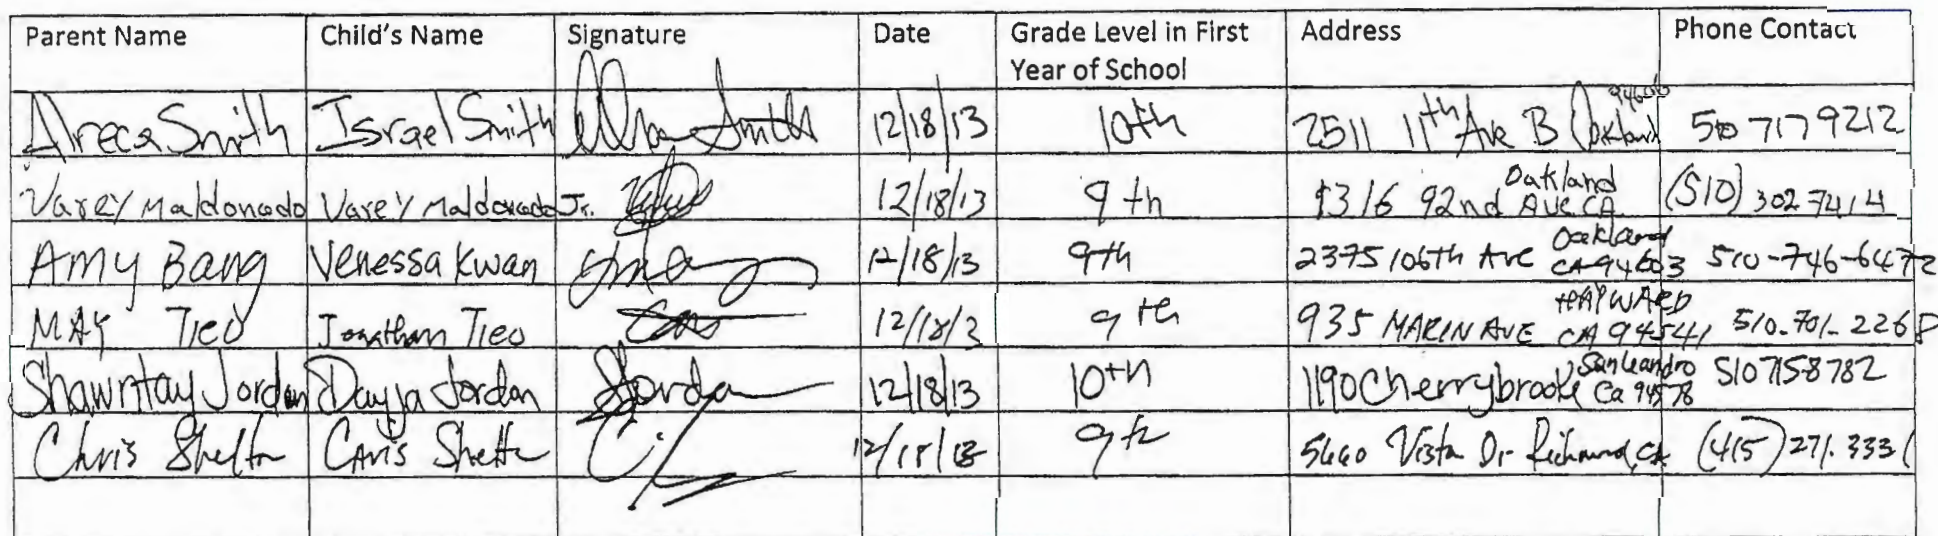 Parent Name Child's Name Signature Date Grade Level in First Year of School Address Phone Contact
Alreca Smith Israel Smith Smith 12/18/13 10th 2511 11th Ave B Oakland 94606 510 717 9212
Varey Maldonado Varey Maldonado Jr. 12/18/13 9th 1316 92nd Ave Oakland CA (510) 302 7414
Amy Bang Venessa Kwan 12/18/13 9th 2375 106th Ave Oakland CA 94603 510-746-6472
MAY TIEO Jonathan Tieo 12/18/3 9th 935 MARIN AVE HAYWARD CA 94541 510-701-2268
Shawntay Jordan Dayja Jordan SJordan 12/18/13 10th 1190 Cherrybrook San Leandro Ca 94578 510 7158782
Chris Shelton Chris Shelton 12/18/13 9th 5660 Vista Dr Richmond, CA (415) 271.3331